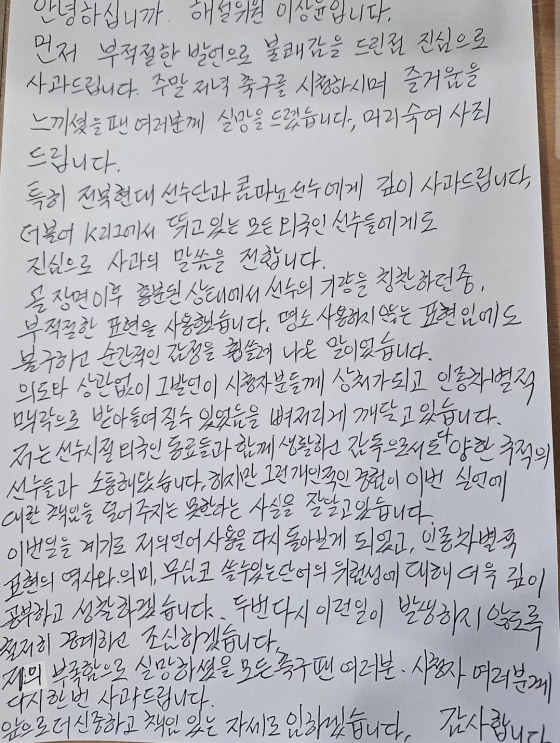 안녕하십니까. 해설위원 이상윤입니다.
먼저 부적절한 발언으로 불쾌감을 드린점 진심으로
사과드립니다. 주말 저녁 축구를 시청하시며 즐거움을
느끼셨을 팬 여러분께 실망을 드렸습니다, 머리숙여 사죄
드립니다.
특히 전북현대 선수단과 콤파뇨선수에게 깊이 사과드립니다,
더불어 K리그에서 뛰고있는 모든 외국인 선수들에게도
진심으로 사과의 말씀을 전합니다.
골 장면이후 흥분된 상태에서 선수의 기량을 칭찬하던중,
부적절한 표현을 사용했습니다. 평소 사용하지 않는 표현임에도
불구하고 순간적인 감정을 휩쓸려 나온 말이었습니다.
의도와 상관없이 그발언이 시청자분들께 상처가되고 인종차별적
맥락으로 받아들여질수 있었음을 뼈저리게 깨닫고 있습니다.
저는 선수시절 외국인 동료들과 함께 생활하고 감독으로서도 다양한 국적의
선수들과 소통해왔습니다, 하지만 그런 개인적인 경험이 이번 실언에
대한 책임을 덜어주지는 못한다는 사실을 잘알고있습니다.
이번일을 계기로 저의언어 사용을 다시 돌아보게 되었고, 인종차별적
표현의 역사와 의미, 무심코 쓸수있는단어의 위험성에 대해 더욱 깊이
공부하고 성찰하겠습니다. 두번다시 이런일이 발생하지 않도록
철저히 경계하고 조심하겠습니다.
저의 부족함으로 실망하셨을 모든축구팬 여러분. 시청자 여러분께
다시한번 사과드립니다.
앞으로더신중하고 책임 있는 자세로 임하겠습니다. 감사합니다